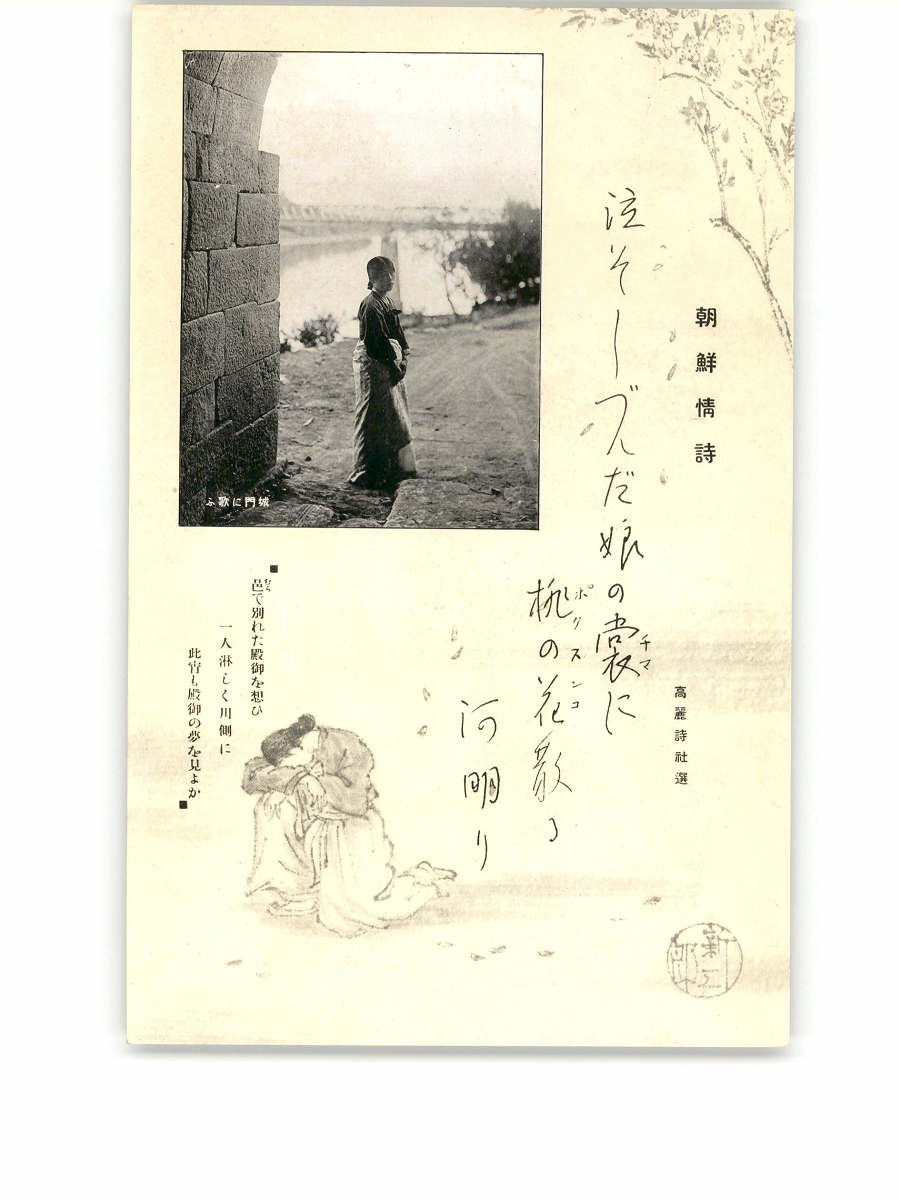 朝鮮情詩
高麗詩社選
泣きしづんだ娘の裳に
チマ
桃の花散る
ポクスンコ
河明り
城門に歌ふ
邑で別れた殿御を想ひ
むら
一人淋しく川側に
此宵も殿御の夢を見よか